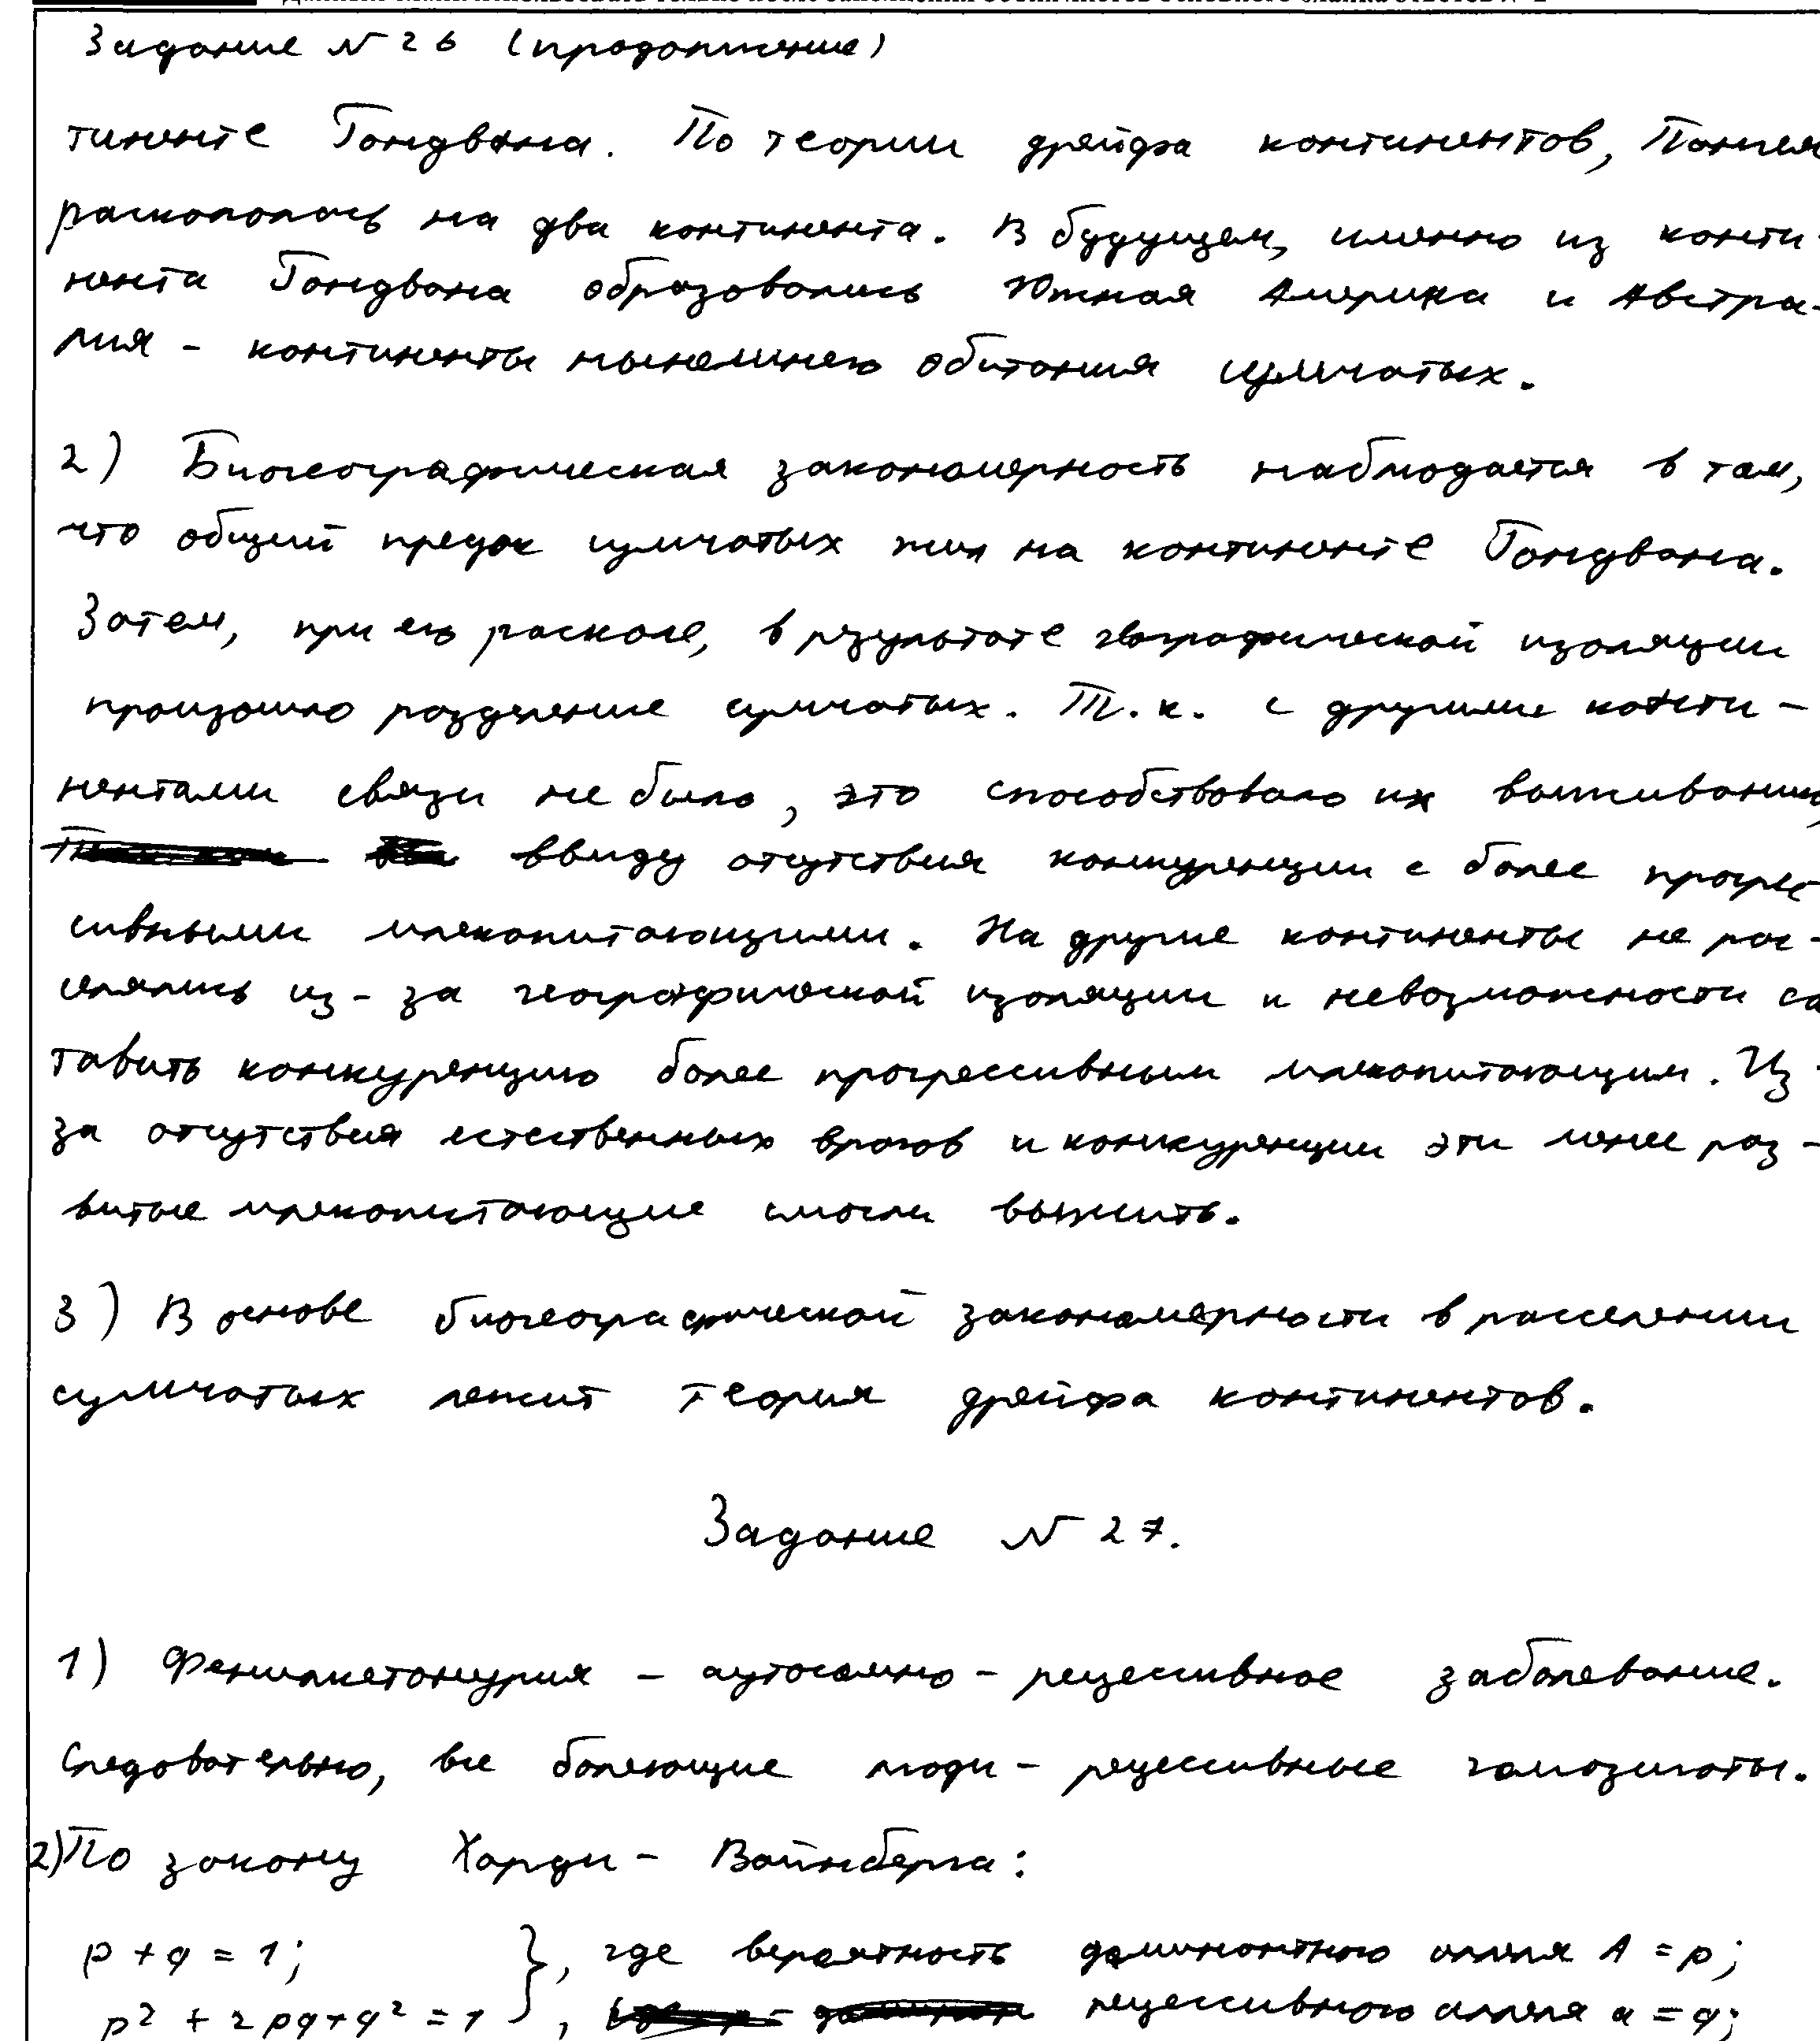 Задание №26 (продолжение)
тиненте Гондвана. По теории дрейфа континентов, Пангея
раскололась на два континента. В будущем, именно из конти-
нента Гондвана образовались Южная Америка и Австра-
лия - континенты нынешнего обитания сумчатых.
2) Биогеографическая закономерность наблюдается в том,
что общий предок сумчатых жил на континенте Гондвана.
Затем, при его расколе, в результате географической изоляции
произошло разделение сумчатых. Т.к. с другими конти-
нентами связи не было, это способствовало их выживанию,
ввиду отсутствия конкуренции с более прогрес
сивными млекопитающими. На другие континенты не рас-
селялись из-за географической изоляции и невозможности со
тавить конкуренцию более прогрессивным млекопитающим. Из-
за отсутствия естественных врагов и конкуренции эти менее раз-
витые млекопитающие смогли выжить.
3) В основе биогеографической закономерности в расселении
сумчатых лежит теория дрейфа континентов.
Задание №27.
1) Фенилкетонурия - аутосомно-рецессивное заболевание.
Следовательно, все болеющие люди - рецессивные гомозиготы.
2) По закону Харди-Вайнберга:
p + q = 1; }, где вероятность доминантного аллеля A = p;
p² + 2pq + q² = 1 , рецессивного аллеля a = q;